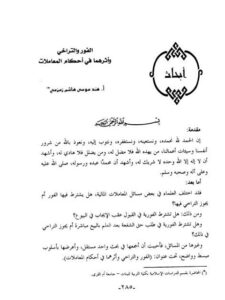 أبحاث
الفور والتراخي
وأثرهما في أحكام المعاملات
أ. هند موسى هاشم زمزمي
بسم الله الرحمن الرحيم
مقدمة:
إن الحمد لله نحمده، ونستعينه، ونستغفره، ونتوب إليه، ونعوذ بالله من شرور
أنفسنا وسيئات أعمالنا، من يهده الله فلا مضل له، ومن يضلل فلا هادي له، وأشهد
أن لا إله إلا الله وحده لا شريك له، وأشهد أن محمدًا عبده ورسوله، صلى الله عليه
وعلى آله وصحبه وسلم.
أما بعد:
فقد اختلف العلماء في بعض مسائل المعاملات المالية، هل يشترط فيها الفور أم
يجوز التراخي فيها؟
ومن ذلك: هل تشترط الفورية في القبول عقب الإيجاب في البيوع؟
وهل تشترط الفورية في طلب حق الشفعة بعد العلم بالبيع مباشرة أم يجوز التراخي
في ذلك؟
وغيرها من المسائل، فأحببت أن أجمعها في بحث واحد مستقل، وأعرضها بأسلوب
مبسط وواضح، تحت عنوان: (الفور والتراخي وأثرهما في أحكام المعاملات).
(*) المحاضرة بقسم الدراسات الإسلامية بكلية التربية للبنات – جامعة أم القرى.
-٢٨٥-